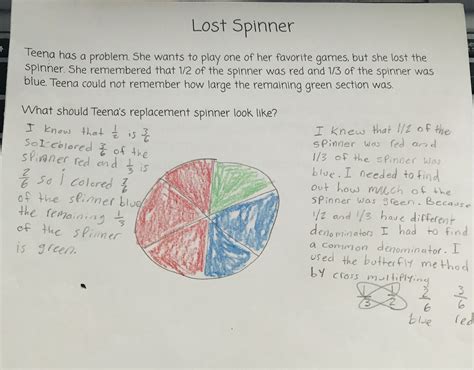 Lost Spinner
Teena has a problem. She wants to play one of her favorite games, but she lost the
spinner. She remembered that 1/2 of the spinner was red and 1/3 of the spinner was
blue. Teena could not remember how large the remaining green section was.
What should Teena's replacement spinner look like?
I know that 1/2 is 3/6
so I colored 3/6 of the
spinner red and 1/3 is
2/6 so I colored 2/6
of the spinner blue
the remaining 1/3
of the spinner
is green.
I knew that 1/2 of the
spinner was red and
1/3 of the spinner was
blue. I needed to find
out how much of the
spinner was green. Because
1/2 and 1/3 have different
denominators I had to find
a common denominator. I
used the butterfly method
by cross multiplying
1/3 1/2 2/6 3/6
blue red